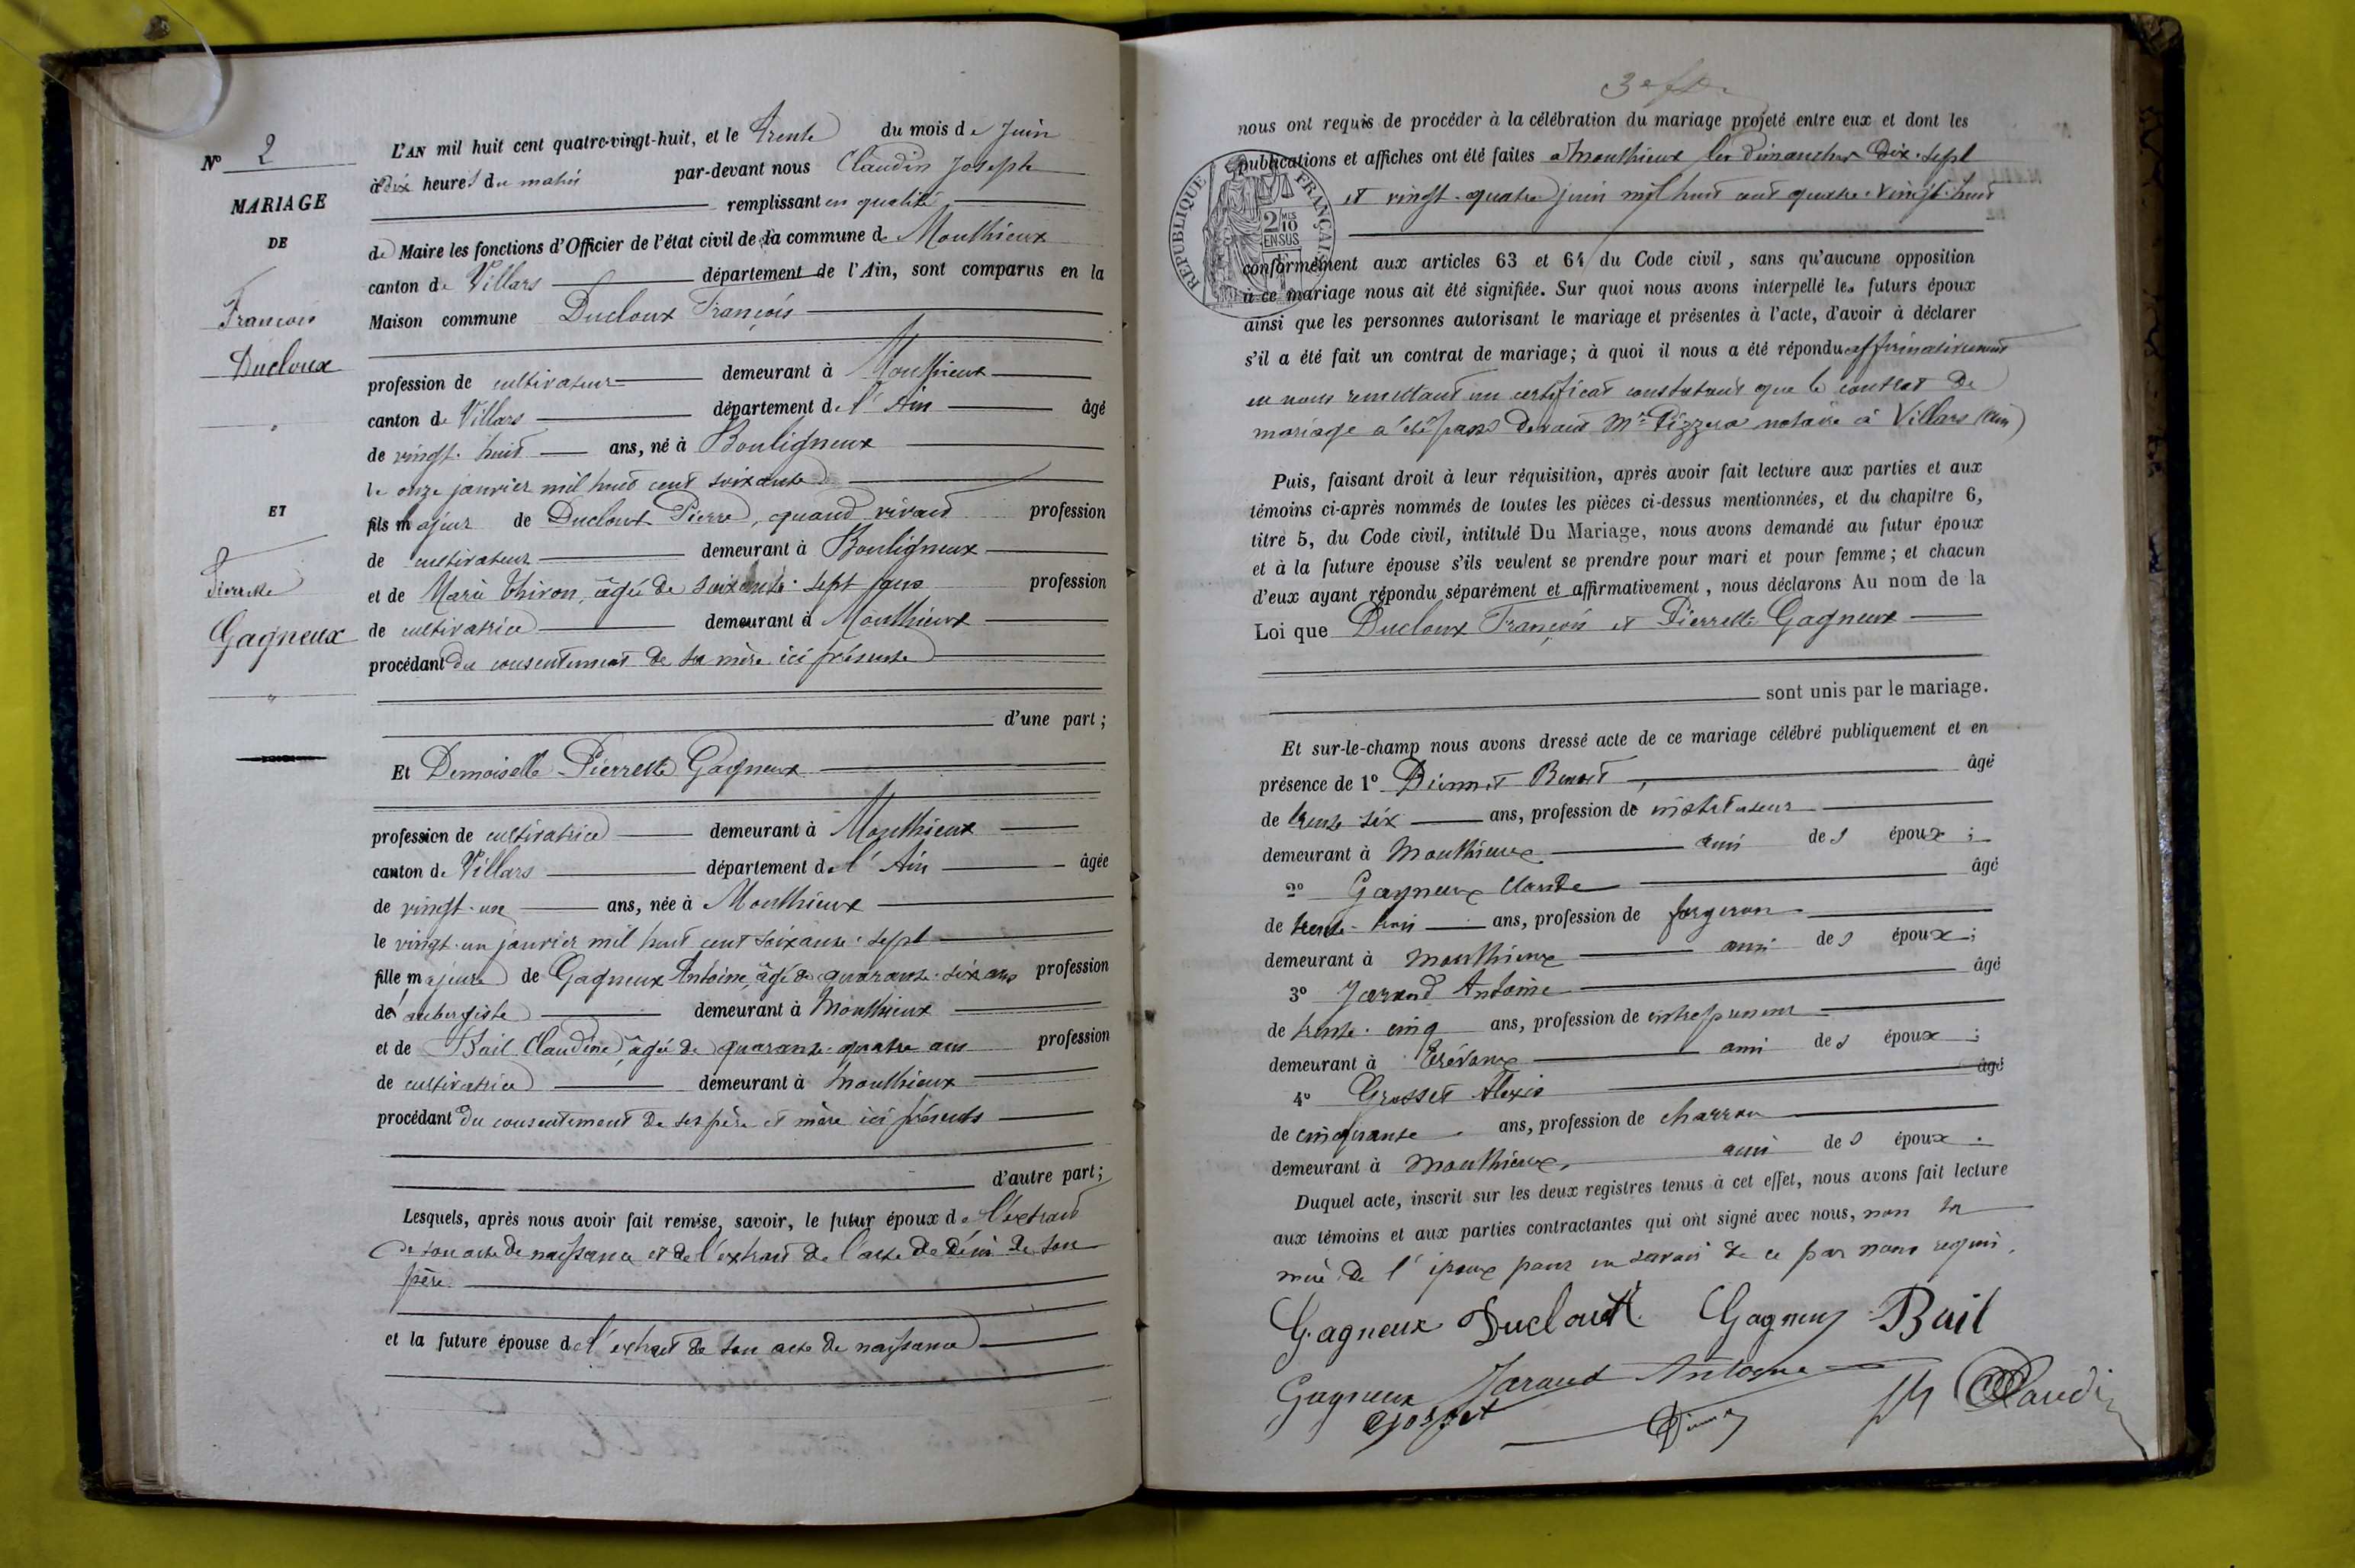 N° 2
MARIAGE
DE
François
Ducloux
ET
Pierrette
Gagneux
L'AN mil huit cent quatre-vingt-huit, et le trente du mois de Juin
à dix heures du matin par-devant nous Claudin Joseph
remplissant en qualité
de Maire les fonctions d'Officier de l'état civil de la commune de Monthieux
canton de Villars département de l'Ain, sont comparus en la
Maison commune Ducloux François
profession de cultivateur demeurant à Monthieux
canton de Villars département de l'Ain âgé
de vingt-huit ans, né à Bouligneux
le onze janvier mil huit cent soixante
fils majeur de Ducloux Pierre, quand vivait profession
de cultivateur demeurant à Bouligneux
et de Marie Thivon, âgée de soixante-sept ans profession
de cultivatrice demeurant à Monthieux
procédant du consentement de sa mère ici présente
d'une part;
Et Demoiselle Pierrette Gagneux
profession de cultivatrice demeurant à Monthieux
canton de Villars département de l'Ain âgée
de vingt-un ans, née à Monthieux
le vingt-un janvier mil huit cent soixante-sept
fille majeure de Gagneux Antoine, âgé de quarante-six ans profession
d'aubergiste demeurant à Monthieux
et de Bail Claudine, âgée de quarante-quatre ans profession
de cultivatrice demeurant à Monthieux
procédant du consentement de ses père et mère ici présents
d'autre part;
Lesquels, après nous avoir fait remise, savoir, le futur époux de l'extrait
de son acte de naissance et de l'extrait de l'acte de décès de son
père
et la future épouse de l'extrait de son acte de naissance
nous ont requis de procéder à la célébration du mariage projeté entre eux et dont les
publications et affiches ont été faites à Monthieux les dimanches dix-sept
et vingt-quatre juin mil huit cent quatre-vingt-huit
REPUBLIQUE FRANÇAISE
2/10 EN SUS
conformément aux articles 63 et 64 du Code civil, sans qu'aucune opposition
à ce mariage nous ait été signifiée. Sur quoi nous avons interpellé les futurs époux
ainsi que les personnes autorisant le mariage et présentes à l'acte, d'avoir à déclarer
s'il a été fait un contrat de mariage; à quoi il nous a été répondu affirmativement
en nous remettant un certificat constatant que le contrat de
mariage a été passé devant Mre Pizzera notaire à Villars (Ain)
Puis, faisant droit à leur réquisition, après avoir fait lecture aux parties et aux
témoins ci-après nommés de toutes les pièces ci-dessus mentionnées, et du chapitre 6,
titre 5, du Code civil, intitulé Du Mariage, nous avons demandé au futur époux
et à la future épouse s'ils veulent se prendre pour mari et pour femme; et chacun
d'eux ayant répondu séparément et affirmativement, nous déclarons Au nom de la
Loi que Ducloux François et Pierrette Gagneux
sont unis par le mariage.
Et sur-le-champ nous avons dressé acte de ce mariage célébré publiquement et en
présence de 1° Benoit, âgé
de trente six ans, profession de instituteur
demeurant à Monthieux ami des époux;
2° Gagneux Claude âgé
de trente-trois ans, profession de forgeron
demeurant à Monthieux ami des époux;
3° Jarand Antoine âgé
de trente-cinq ans, profession de entrepreneur
demeurant à Trévoux ami des époux;
4° Grosset Alexis âgé
de cinquante ans, profession de charron
demeurant à Monthieux, ami des époux.
Duquel acte, inscrit sur les deux registres tenus à cet effet, nous avons fait lecture
aux témoins et aux parties contractantes qui ont signé avec nous, non la
mère de l'époux pour ne savoir de ce par nous requis.
Gagneux Ducloux Gagneux Bail
Gagneux Jarand Antoine
Grosset Claudin